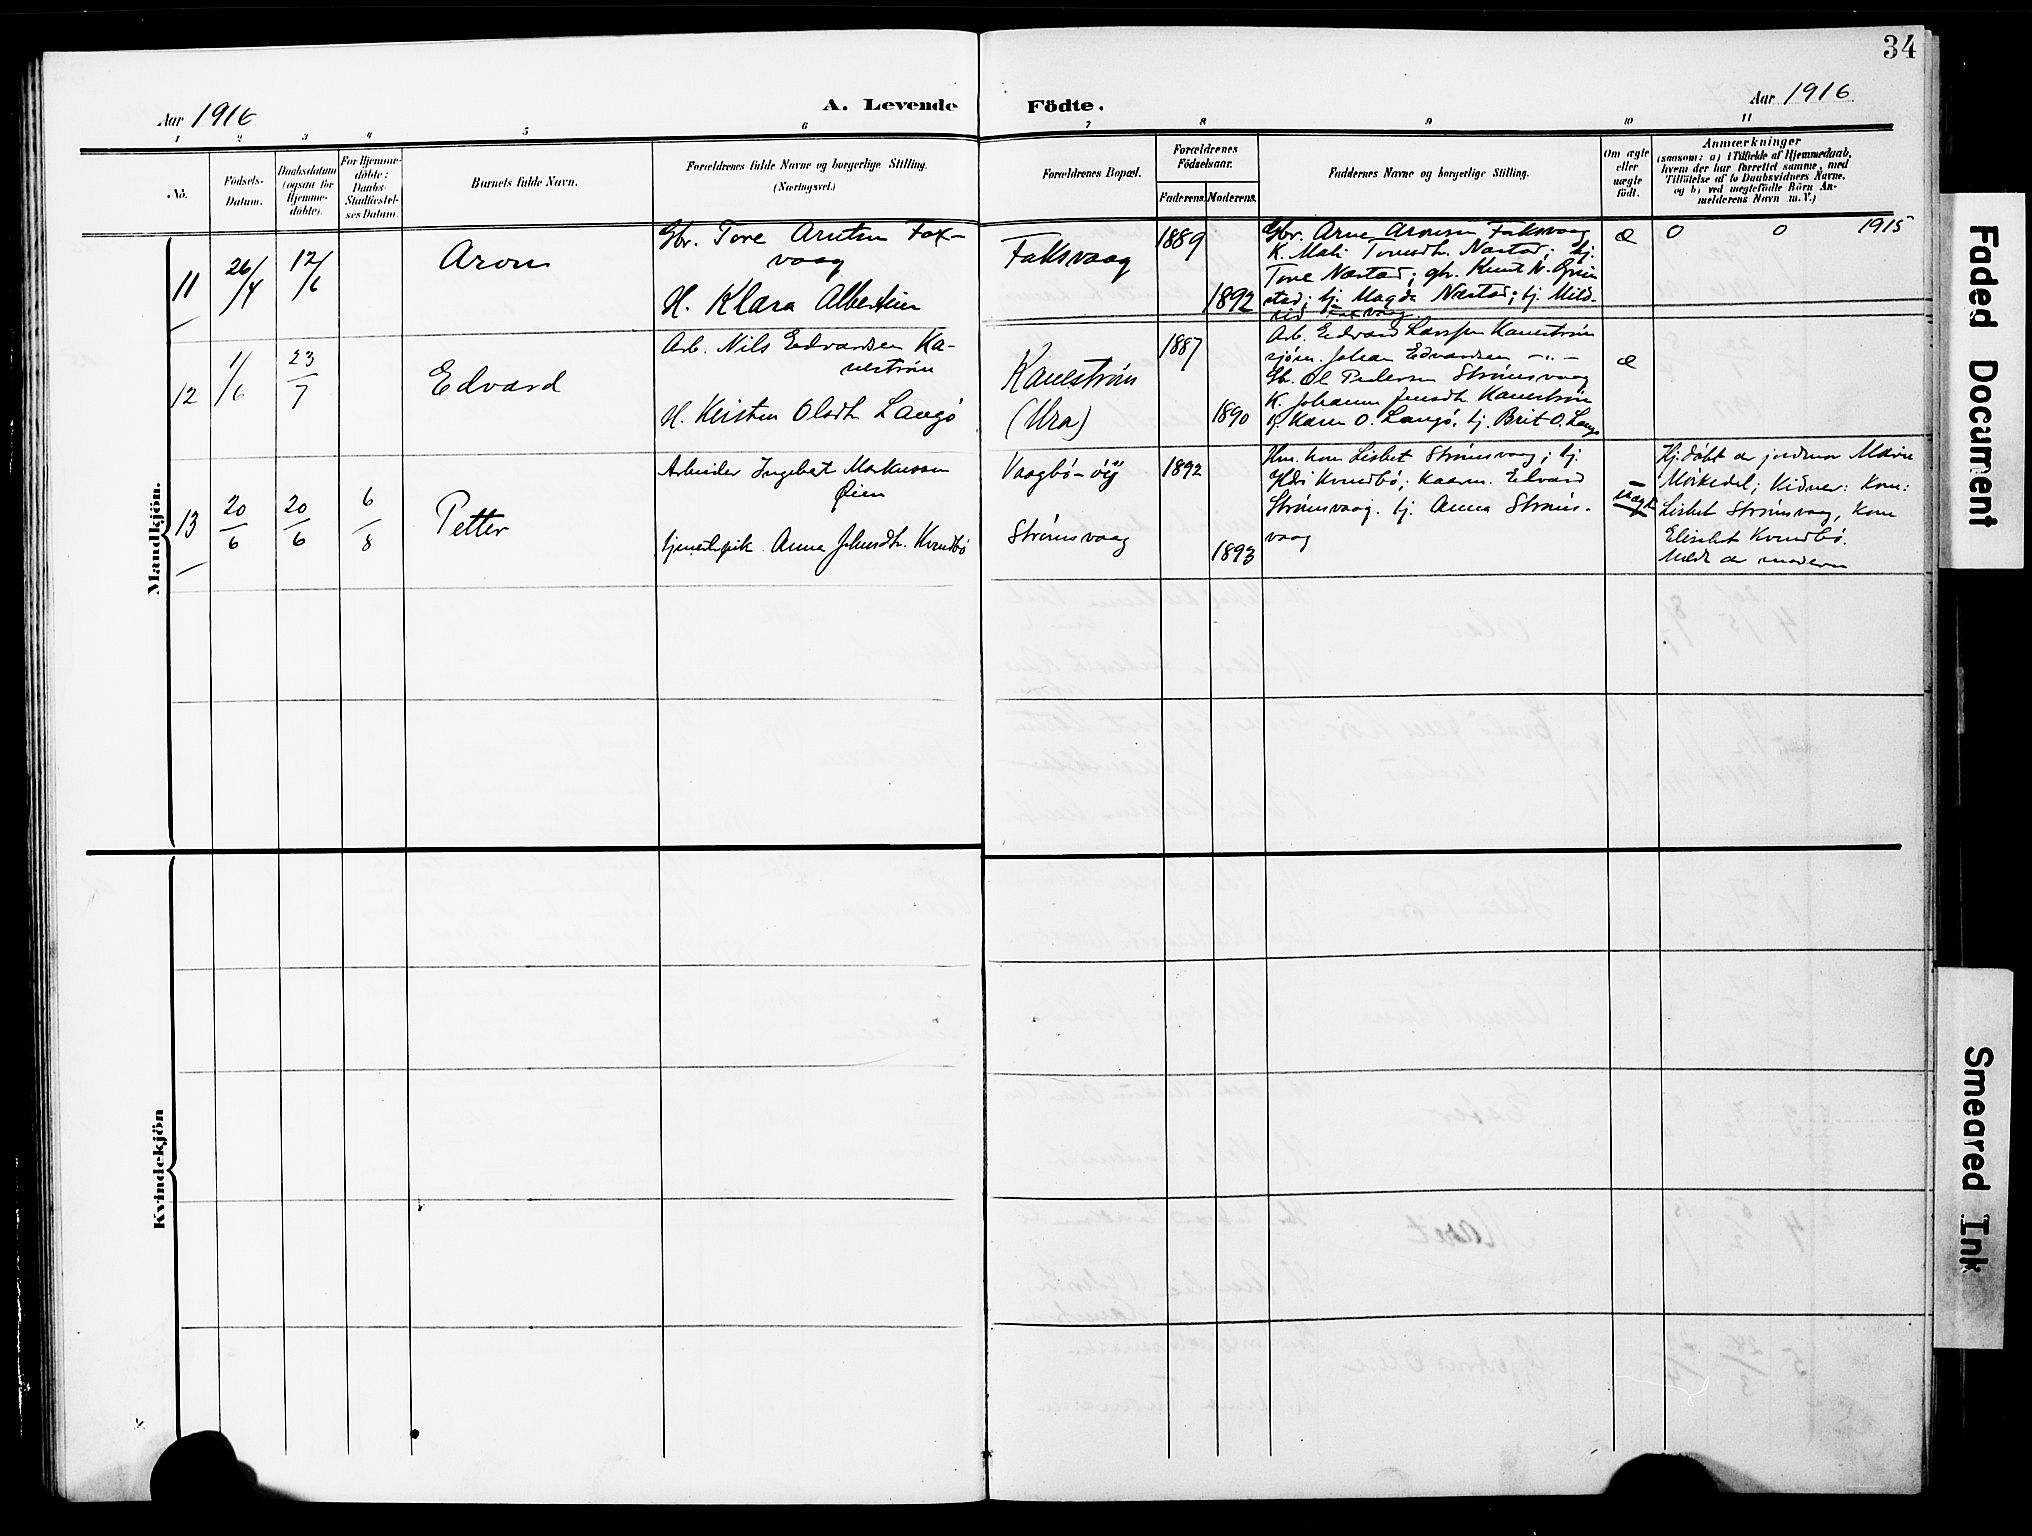 34
Aar 1916
A. Levende Födte.
Aar 1916
1 2 3 4 5 6 7 8 9 10 11
Nó.
Födsels-
Datum.
Daabsdatum
(ogsaa for
Hjemme-
döbte).
For Hjemme-
döbte:
Daabs-
Stadfæstel-
ses Datum.
Barnets fulde Navn.
Forældrenes fulde Navne og borgerlige Stilling.
(Næringsvei.)
Forældrenes Bopæl.
Forældrenes
Födselsaar.
Faderens.
Moderens.
Faddernes Navne og borgerlige Stilling.
Om ægte
eller
uægte
födt.
Anmærkninger
(saasom: a) i Tilfælde af Hjemmedaab,
hvem der har forrettet samme, med
Tilföielse af to Daabsvidners Navne,
og b) ved uegtefödte Börn An-
melderens Navn m. V.)
Mandkjön.
11
26/4
12/6
Aron
Gbr. Tore Arntsen Fox-
vaag
H. Klara Albertine
Faksvaag
1889
1892
Gbr. Arne Aronsen Faksvaag
K. Mali Toresdt. Næstad; tj.
Tore Næstad; gbr. Knut K.
stad; tj. Magda Næstad; tj. Mild-
rid Faxvaag
æ
0 0 1915
12
1/6
23/7
Edvard
Arb. Nils Edvardsen Ka-
nestrøm
H. Kristen Olsdt. Langö
Kanestrøm
(Ura)
1887
1890
Arb. Edvard Larssen Kanestrøm
sjøm. Johan Edvardsen —„—
Gbr. Ol Pedersen Strømsvaag
K. Johanna Jensdt. Kanestrøm
tj. Karen O. Langö, tj. Brit O. Langö
æ
13
20/6
20/6
6/8
Petter
Arbeider Ingebrt Markussen
Øien
tjenestepik. Anna Johnsdt. Kvendbö
Vaagbö-öy
Strømsvaag
1892
1893
Hm. kone Lisbet Strømsvaag; tj.
Kvendbö; kaarm. Edvard
Strømsvaag. tj. Anna Strøms-
vaag
uægt
Hj.døbt av jordmor Marie
Mørkedal; Vidner: kone:
Lisbet Strømsvaag, kone
Elisabet Kvendbö.
Meldt av moderen
Kvindekjön
Faded Document
Smeared Ink